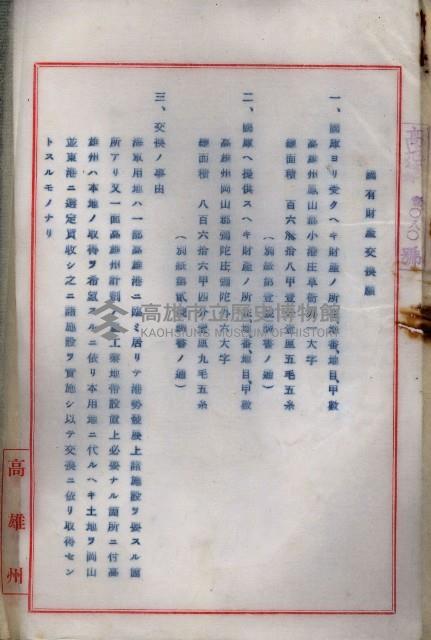 國有財產交換願
一、國庫ヨリ受クヘキ財產ノ所在地番、地目、甲數
高雄州鳳山郡小港庄草衙
大字
總面積 百六拾八甲壹
厘五毛五糸
(別紙第壹
書ノ通)
二、國庫ヘ提供スヘキ財產ノ所
地番、地目、甲數
高雄州岡山郡彌陀庄彌陀
六大字
總面積 八百六拾六甲四分
厘九毛五糸
(別紙第貳
書ノ通)
三、交換ノ事由
海軍用地ハ一部高雄港ニ臨ミ居リテ港勢發展上諸施設ヲ要スル箇
所アリ又一面高雄州計劃
工業地帶設置上必要ナル箇所ニ付高
雄州ハ本地ノ取得ヲ希望
ルニ依リ本用地ニ代ルヘキ土地ヲ岡山
並東港ニ選定買收シ之ニ諸施設ヲ實施シ以テ交換ニ依リ取得セン
トスルモノナリ
高雄州
高雄市立歷史博物館
KAOHSIUNG MUSEUM OF HISTORY